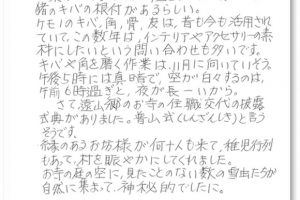 緒のキバの根付があるらしい。
ケモノのキバ、角、骨、皮は、昔も今も活用され
ていて、この数年は、インテリアやアクセサリーの素
材にしたいという問い合わせも多いです。
キバや角を磨く作業は、11月に向いていそう。
午後5時には真暗で、空が白々するのは、
午前6時過ぎと、夜が長ーいから。
さて、遠山郷のお寺の住職交代の披露
式典がありました。晋山式(しんざんしき)と言う
そうです。
縁あるお坊様が何十人も来て、稚児行列
もあって、村を賑やかにしてくれました。
お寺の庭の空に、見たことのない数の雪虫たちが
自然に集まって、神秘的でした。